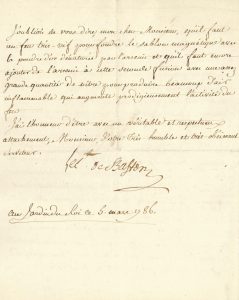 J'oubliois de vous dire mon cher Monsieur, qu'il faut
un feu très vif pour fondre le sablon magnétique avec
la poudre d'or dénaturée par l'arsenic et qu'il faut encore
ajouter de l'arsenic à cette seconde fusion avec une assez
grande quantité de nitre pour produire beaucoup d'air
inflammable qui augmente prodigieusement l'activité du
feu.
J'ai l'honneur d'être avec un véritable et respectueux
attachement, Monsieur Votre très humble et très obéissant
serviteur.
Le Cte de Buffon
Au Jardin du Roi ce 5 mars 1786.